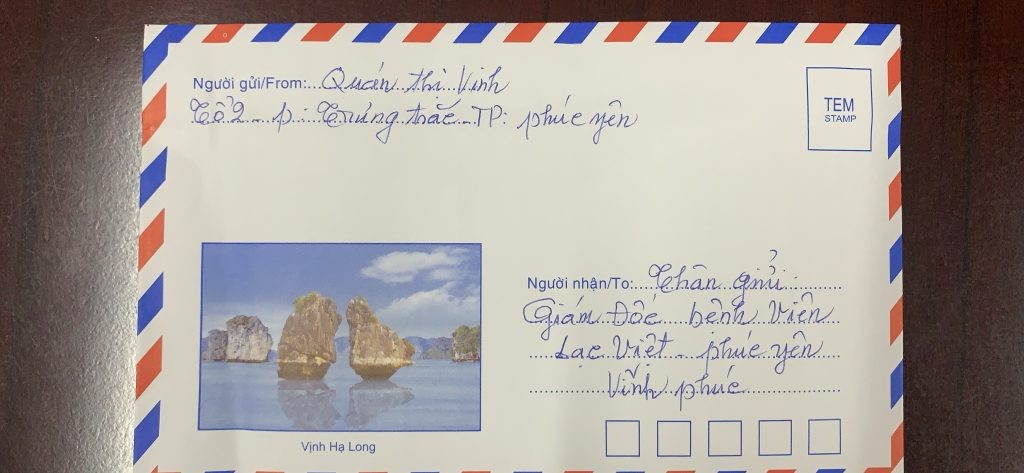 Người gửi/From: Quán thị Vinh
Tổ 2 - p. Trưng trắc - TP: phúc yên
TEM
STAMP
Người nhận/To: Thân gửi
Giám Đốc bệnh Viện
Lạc Việt - phúc yên
Vĩnh phúc
Vịnh Hạ Long